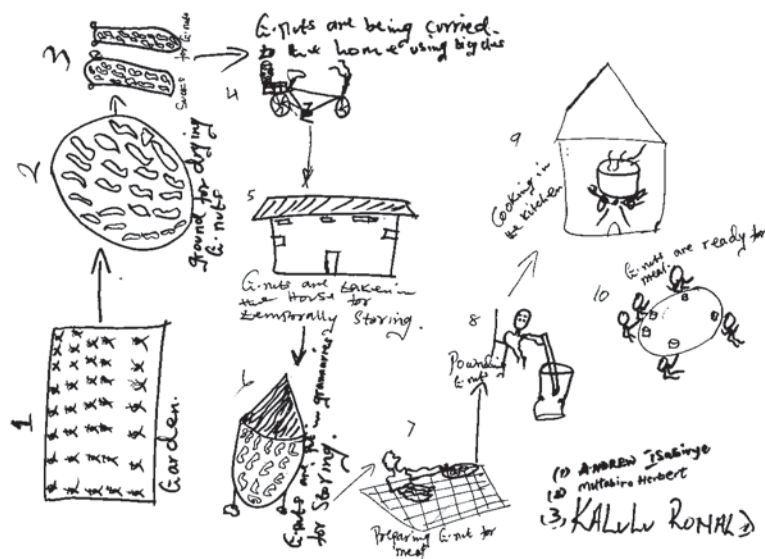 1
Garden.
2
ground for drying
G.nuts
3
Sacks
for G.nuts
4
G.nuts are being carried
to the home using bicycles
5
G.nuts are taken in
the House for
temporally Storing.
6
G.nuts are put in grannaries
for Storing.
7
Preparing G.nut for
meat
8
Pounding
G.nuts
9
Cooking in
the Kitchen
10
G.nuts are ready for
meal.
(1) ANDREW Isabirye
(2) Muttabira Herbert
(3) KALULU RONALD